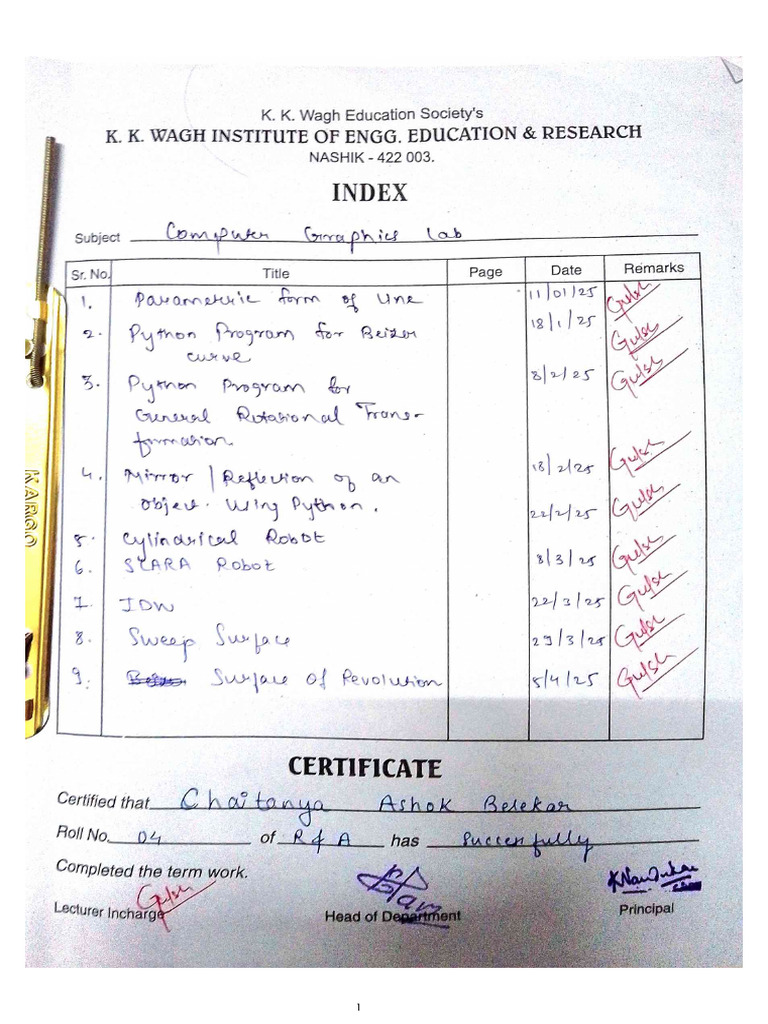 K. K. Wagh Education Society's
K. K. WAGH INSTITUTE OF ENGG. EDUCATION & RESEARCH
NASHIK - 422 003.
INDEX
Subject Computer Graphics Lab
Sr. No. Title Page Date Remarks
1. Parametric form of Line 11/01/25
2. Python Program for Beizer 18/1/25
curve
3. Python Program for 8/2/25
General Rotational Trans-
formation
4. Mirror / Reflection of an 18/2/25
Object Using Python. 22/2/25
5. Cylindrical Robot
6. SCARA Robot 8/3/25
7. IDW 22/3/25
8. Sweep Surface 29/3/25
9. Surface of Revolution 5/4/25
CERTIFICATE
Certified that Chaitanya Ashok Belekar
Roll No. 04 of R & A has Successfully
Completed the term work.
Lecturer Incharge Head of Department Principal
KARGO
1